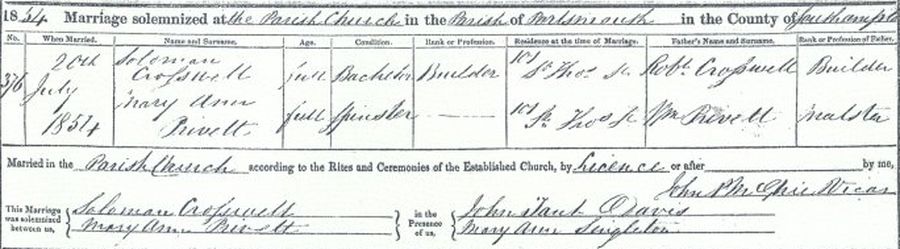 1854 Marriage solemnized at the Parish Church in the Parish of Portsmouth in the County of Southampton
No. When Married. Name and Surname. Age. Condition. Rank or Profession. Residence at the time of Marriage. Father's Name and Surname. Rank or Profession of Father.
376 20th July 1854 Solomon Crosswell full Bachelor Builder 101 St Thos St Robt Crosswell Builder
Mary Ann Privett full Spinster 101 St Thos St Wm Privett Malster
Married in the Parish Church according to the Rites and Ceremonies of the Established Church, by Licence or after by me,
John P McGhie Vicar
This Marriage was solemnized between us, Solomon Crosswell in the Presence of us, John Davis
Mary Ann Privett Mary Ann Singleton